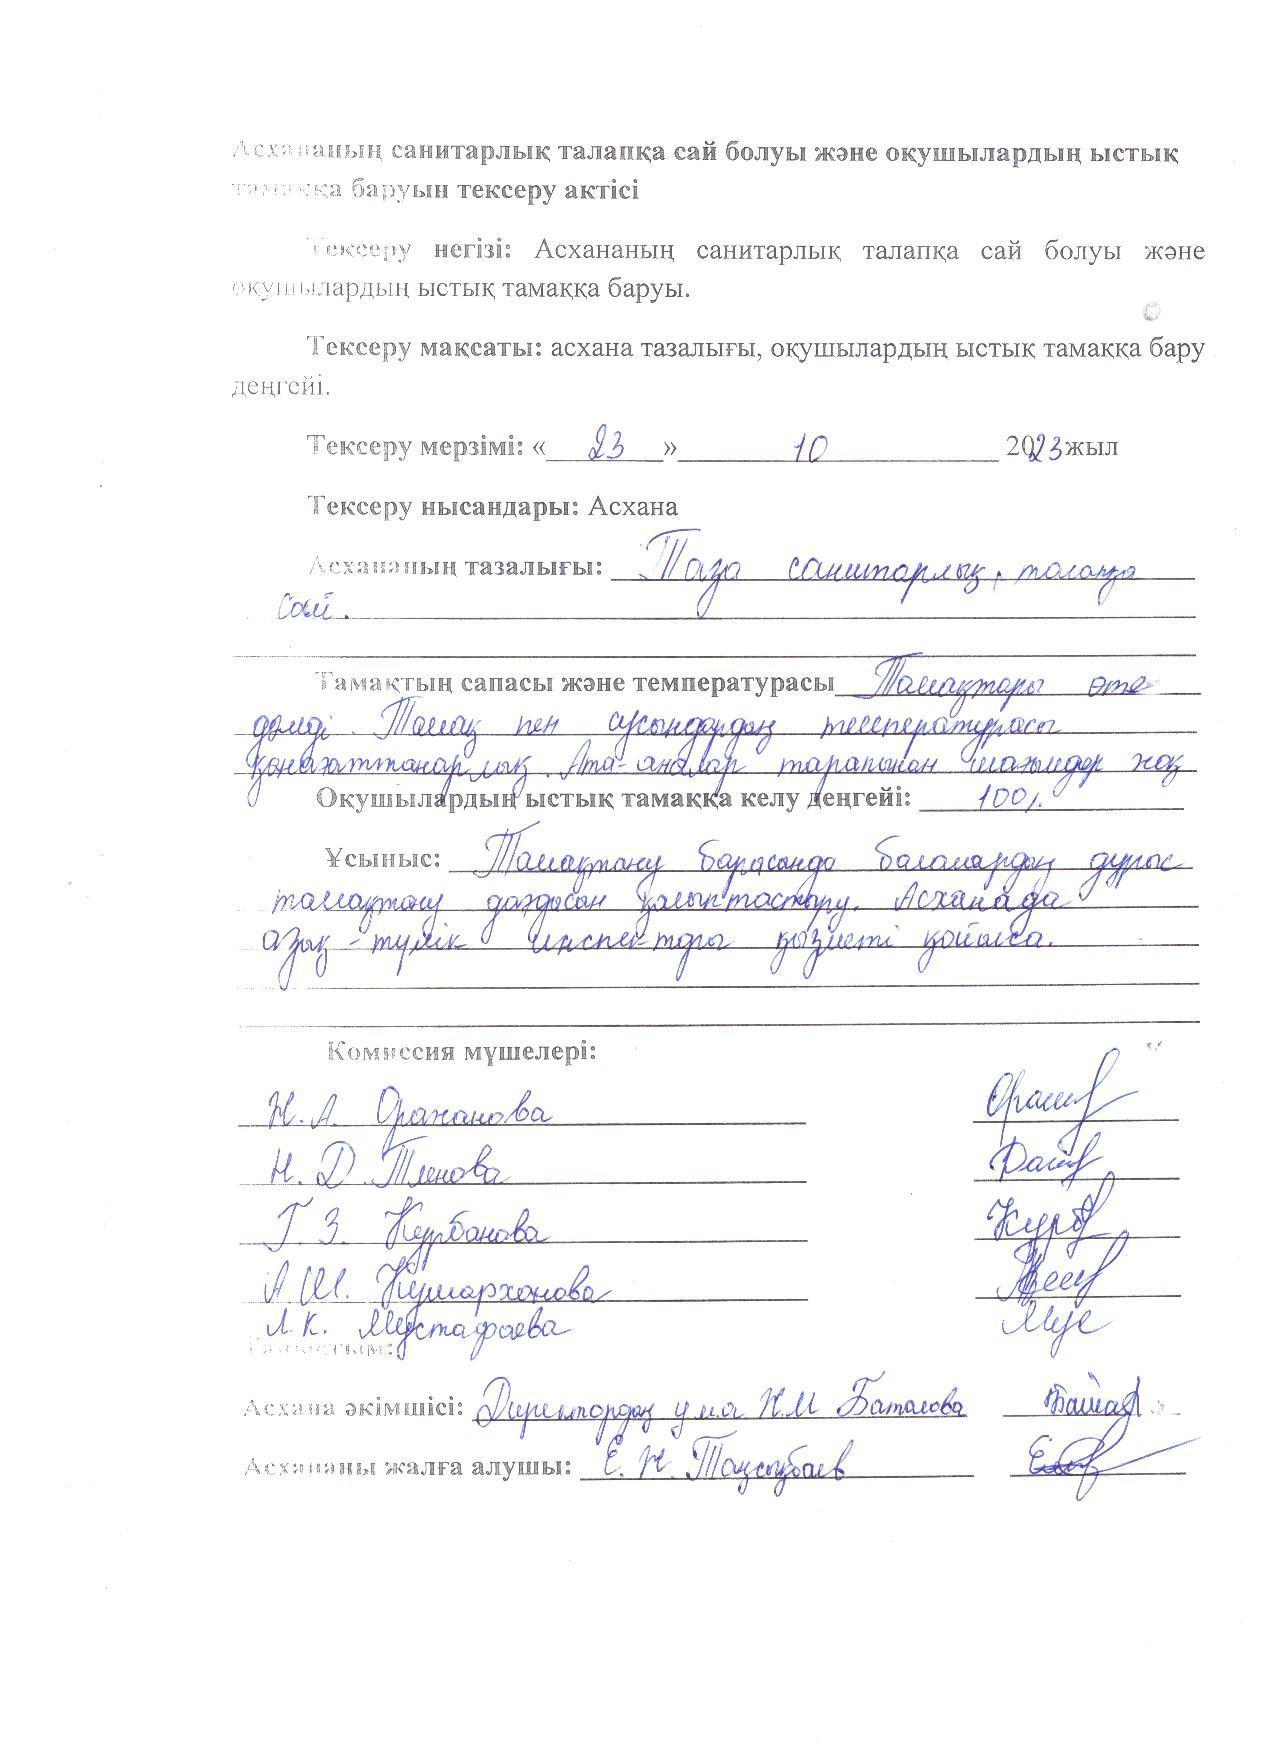 Асхананың санитарлық талапқа сай болуы және оқушылардың ыстық
тамаққа баруын тексеру актісі
Тексеру негізі: Асхананың санитарлық талапқа сай болуы және
оқушылардың ыстық тамаққа баруы.
Тексеру мақсаты: асхана тазалығы, оқушылардың ыстық тамаққа бару
деңгейі.
Тексеру мерзімі: « 23 » 10 2023 жыл
Тексеру нысандары: Асхана
Асхананың тазалығы: Таза санитарлық, талапқа
сай.
Тамақтың сапасы және температурасы Тамақтары өте
дәмді. Тамақ пен сусындардың температурасы
қанағаттанарлық. Ата-аналар тарапынан шағымдар жоқ
Оқушылардың ыстық тамаққа келу деңгейі: 100%.
Ұсыныс: Тамақтану барысында балалардың дұрыс
тамақтану дағдысын қалыптастыру. Асханада
азық-түлік инспекторы қызметі қойылса.
Комиссия мүшелері:
Н.А. Оражанова
Н.Д. Тленова
Г.З. Курбанова Курб
А.Ш. Кумарханова
Л.К. Мустафаева Мус
Таныстым:
Асхана әкімшісі: Директордың у.м.а Н.М Баталова
Асхананы жалға алушы: Е.Н. Таңсықбаев